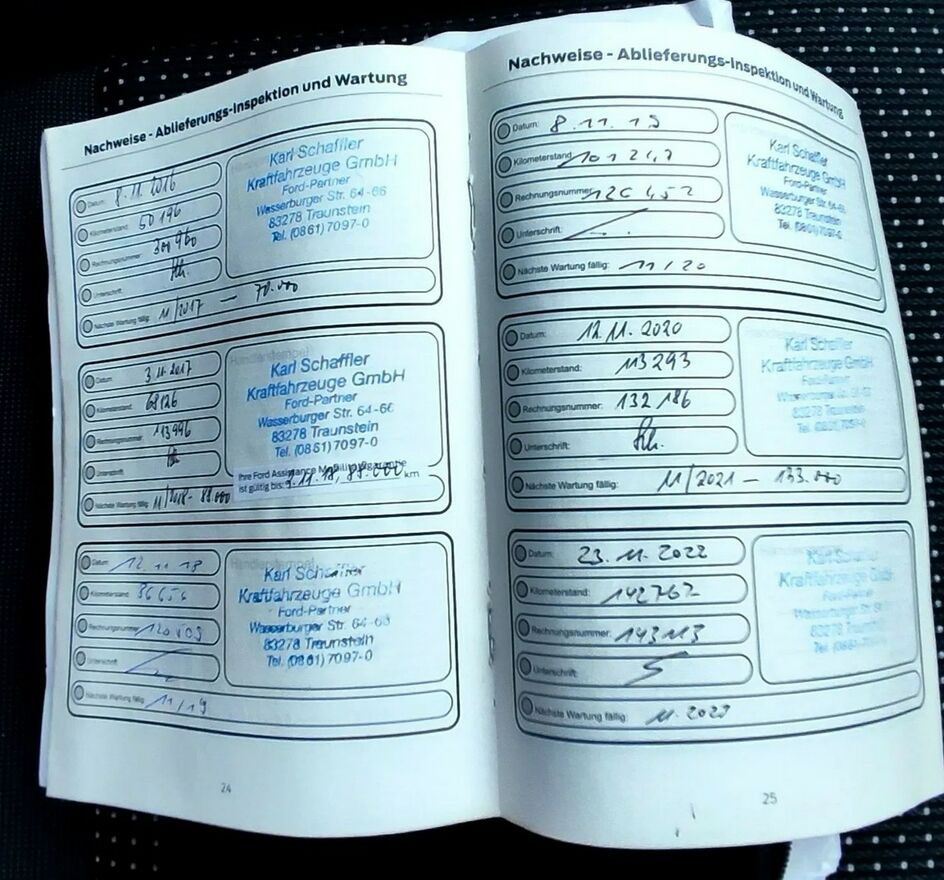 Nachweise - Ablieferungs-Inspektion und Wartung
Datum: 8.11.2016
Kilometerstand: 50196
Rechnungsnummer:
Unterschrift:
Nächste Wartung fällig: 11/2017 — 70.000
Karl Schaffler
Kraftfahrzeuge GmbH
Ford-Partner
Wasserburger Str. 64-66
83278 Traunstein
Tel. (0861) 7097-0
Datum: 3.11.2017
Kilometerstand: 68126
Rechnungsnummer: 113996
Unterschrift:
Nächste Wartung fällig: 11/2018 - 88.000
Händlerstempel
Karl Schaffler
Kraftfahrzeuge GmbH
Ford-Partner
Wasserburger Str. 64-66
83278 Traunstein
Tel. (0861) 7097-0
Ihre Ford Assistance Mobilitätsgarantie
ist gültig bis: 3.11.18, 88.000 km
Datum: 12.11.18
Kilometerstand:
Rechnungsnummer:
Unterschrift:
Nächste Wartung fällig: 11/19
Karl Schaffler
Kraftfahrzeuge GmbH
Ford-Partner
Wasserburger Str. 64-66
83278 Traunstein
Tel. (0861) 7097-0
24
Nachweise - Ablieferungs-Inspektion und Wartung
Datum: 8.11.19
Kilometerstand:
Rechnungsnummer: 126452
Unterschrift:
Nächste Wartung fällig: 11/20
Karl Schaffler
Kraftfahrzeuge GmbH
Ford-Partner
Wasserburger Str. 64-66
83278 Traunstein
Tel. (0861) 7097-0
Datum: 12.11.2020
Kilometerstand: 113293
Rechnungsnummer: 132186
Unterschrift:
Nächste Wartung fällig: 11/2021 — 133.000
Karl Schaffler
Kraftfahrzeuge GmbH
Ford-Partner
83278 Traunstein
Datum: 23.11.2022
Kilometerstand: 142767
Rechnungsnummer: 143113
Unterschrift:
Nächste Wartung fällig: 11.2023
Karl Schaffler
Kraftfahrzeuge GmbH
Ford-Partner
83278 Traunstein
25